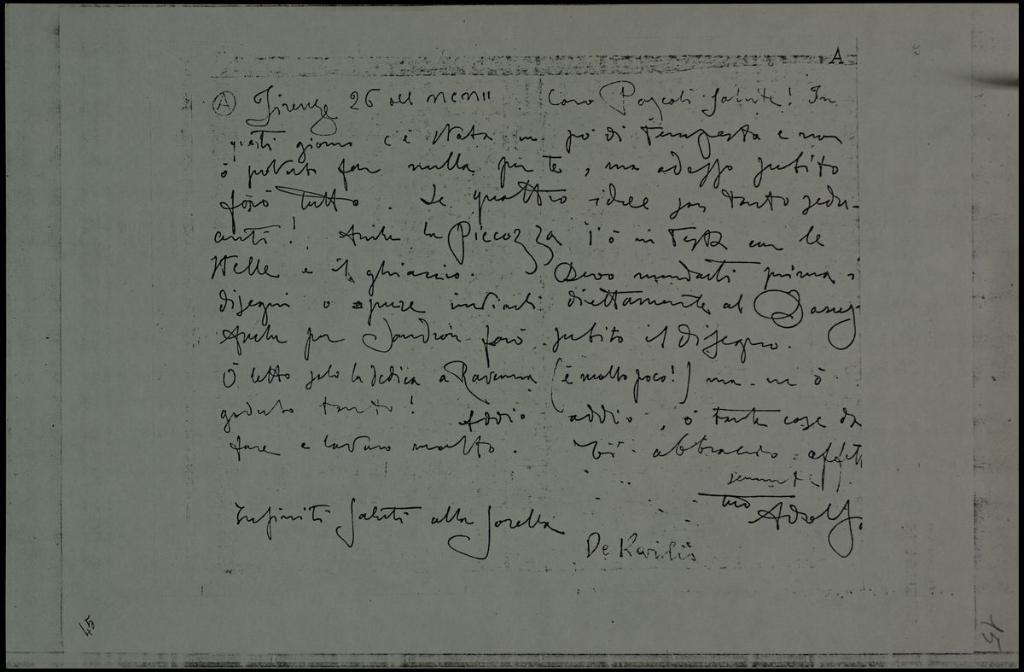 A
Ⓐ Firenze 26 Caro Pascoli salute! In
questi giorni c'è stata un po' di tempesta e non
ò potuto far nulla per te, ma adesso subito
farò tutto. Le quattro idee son tanto sedu-
centi! Anche la Piccozza l'ò in testa con le
stelle e il ghiaccio. Devo mandarti prima i
disegni o opure inviarli direttamente al
Anche per Sandron farò subito il disegno.
Ò letto solo la dedica a Ravenna (è molto poco!) ma ne ò
goduto tanto! Addio addio, ò tante cose da
fare e lavoro molto. Ti abbraccio
tuo Adolfo
Infiniti saluti alla sorella
De Karolis
45
15